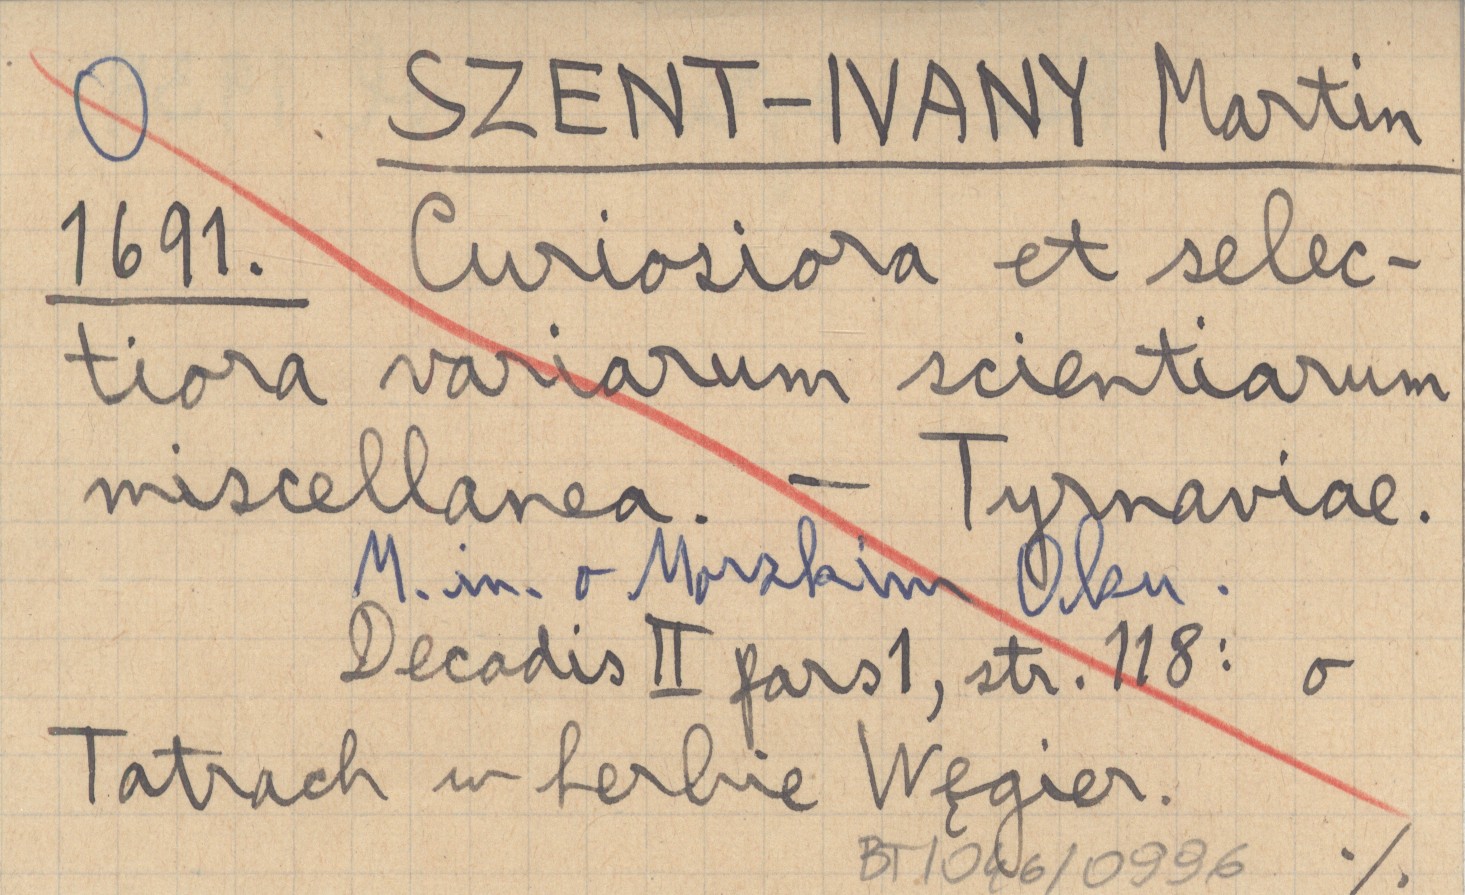 SZENT-IVANY Martin
1691. Curiosiora et selec-
tiora variarum scientiarum
miscellanea. — Tyrnaviae.
M.in. o Morskim Oku.
Decadis II pars 1, str. 118: o
Tatrach w herbie Węgier.
BT/046/0996 ./.